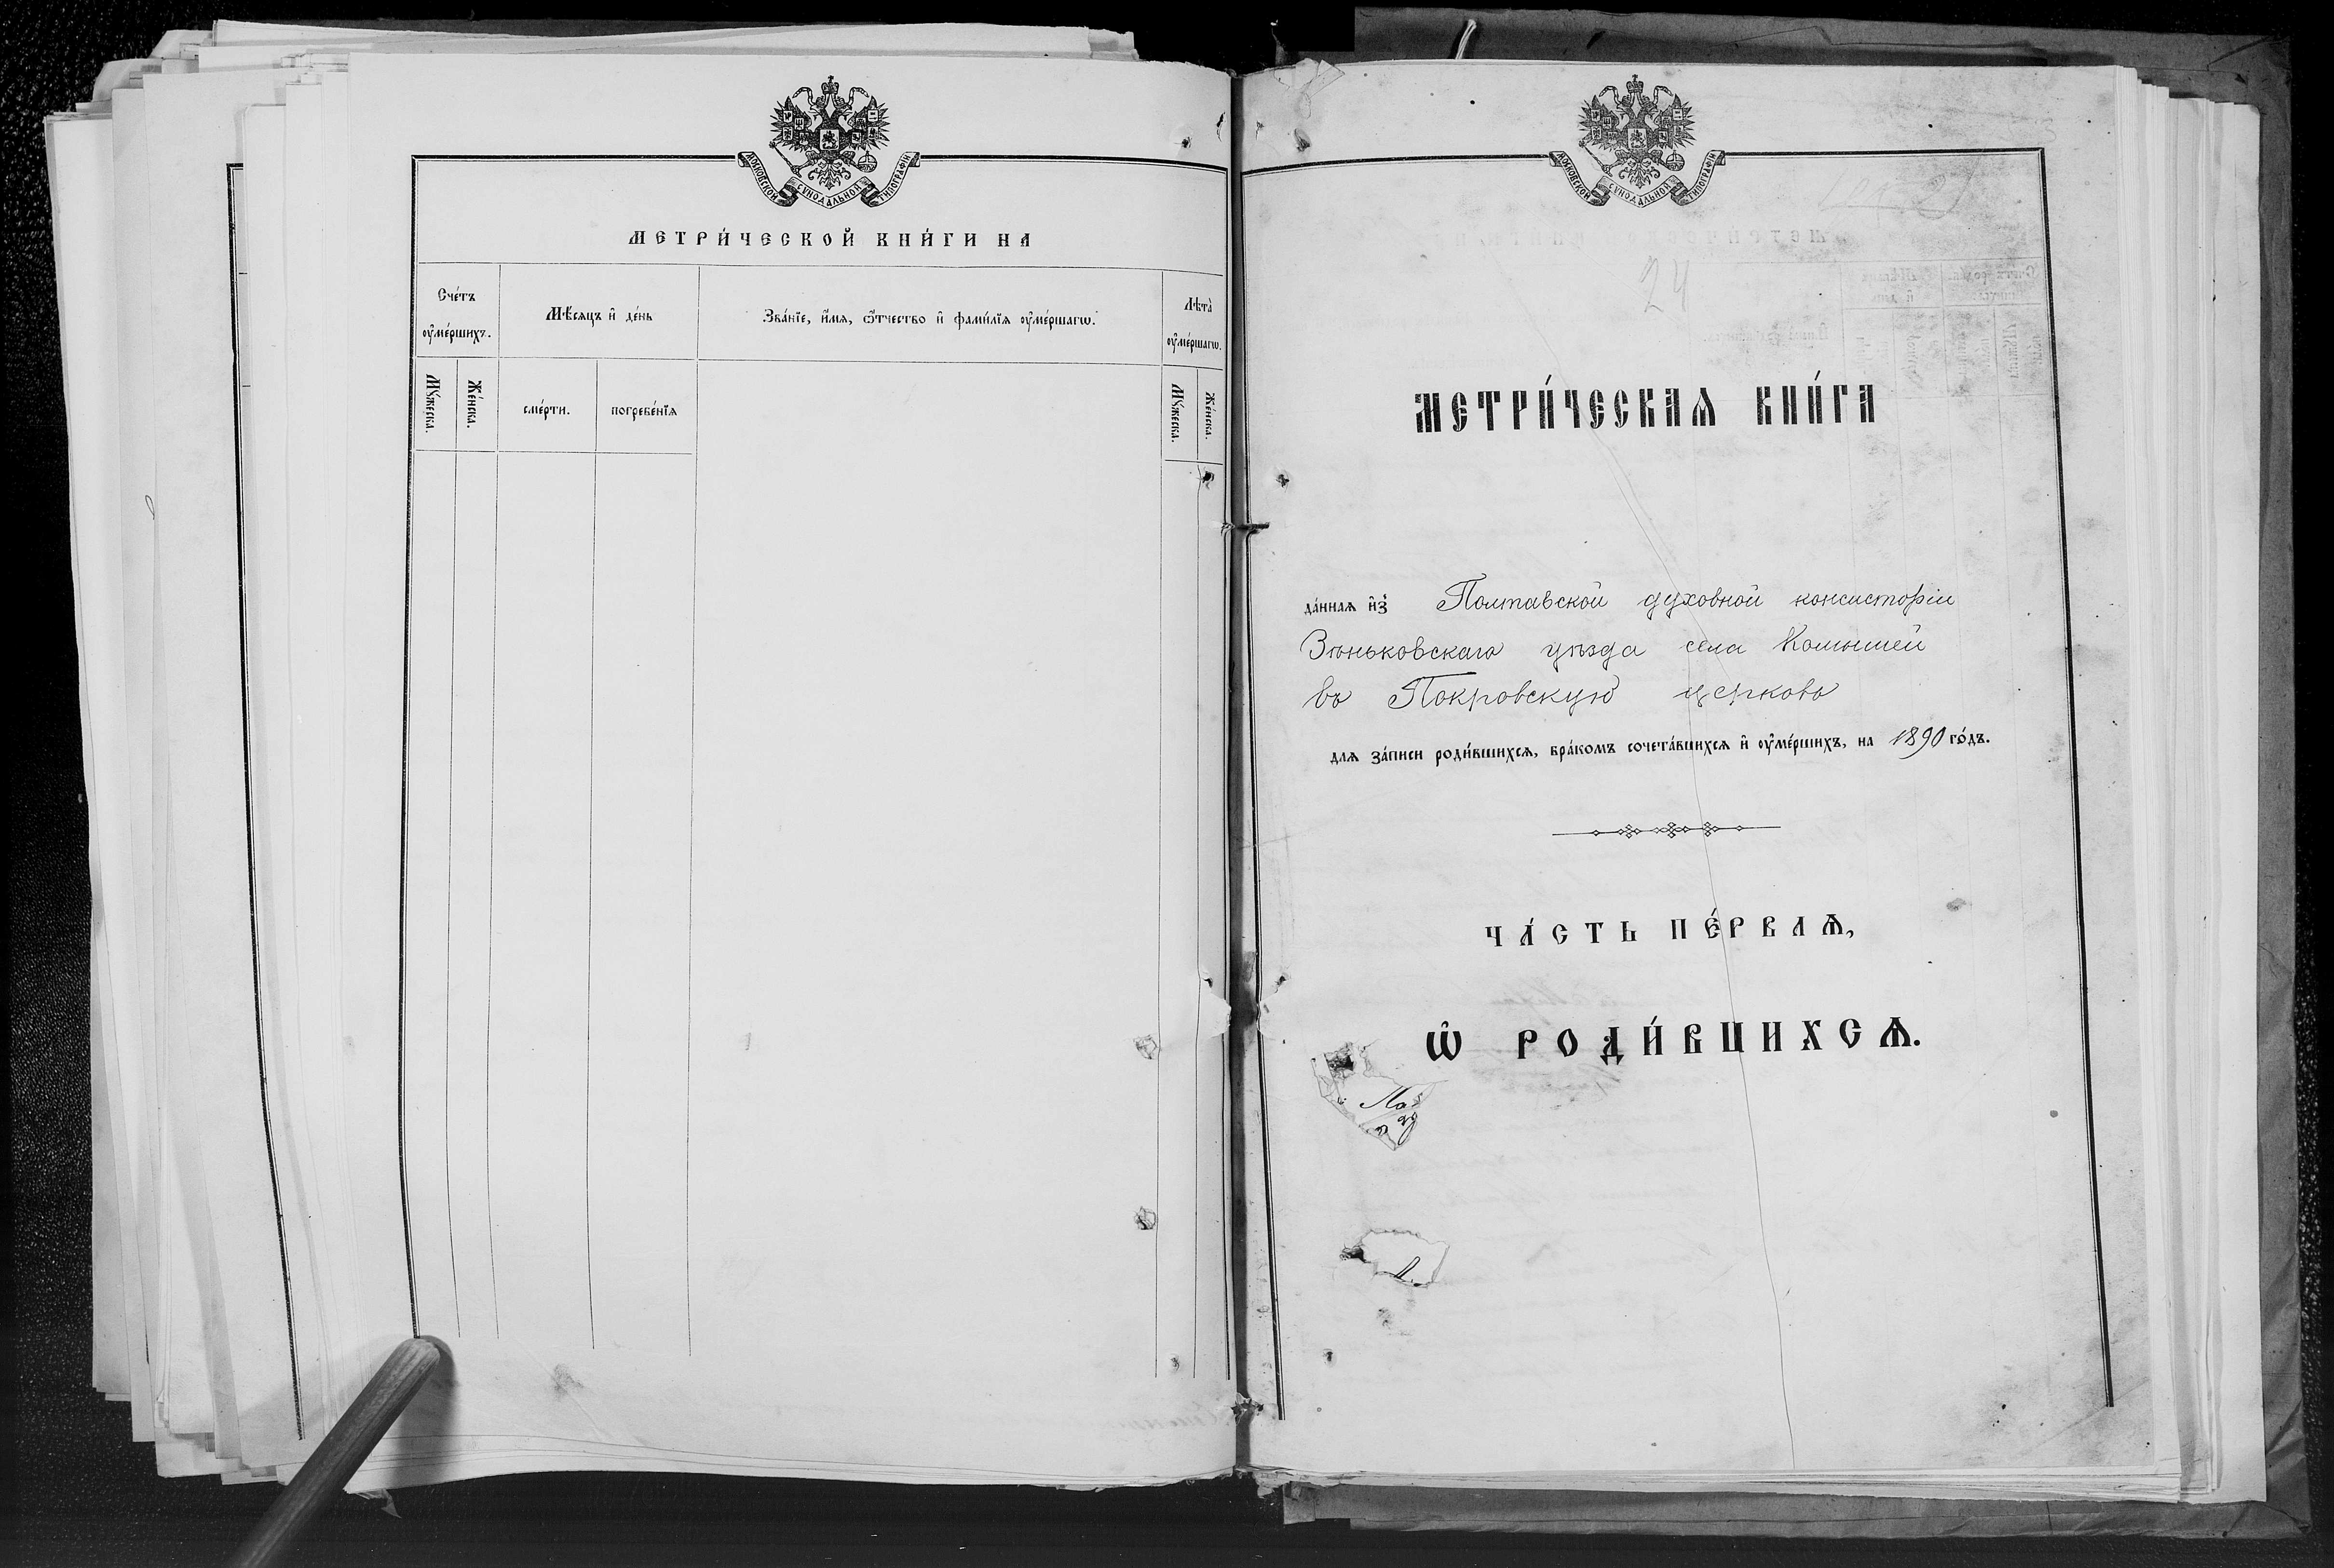 МОСКОВСКОЙ СѴНОДАЛЬНОЙ ТИПОГРАФІИ
МЕТРИ́ЧЕСКОЙ КНИ́ГИ НА
Сче́тъ
оу҆ме́ршихъ.
Мѣ́сяцъ и҆ де́нь
Зва́нїе, и҆́мя, ѻ҆́тчество и҆ фами́лїя оу҆ме́ршагѡ.
Лѣта̀
оу҆ме́ршагѡ.
Мꙋ́жеска.
Же́нска.
сме́рти.
погребе́нїѧ
Мꙋ́жеска.
Же́нска.
МОСКОВСКОЙ СѴНОДАЛЬНОЙ ТИПОГРАФІИ
24
МЕТРИ́ЧЕСКАѦ КНИ́ГА
да́ннаѧ и҆з̾ Полтавской духовной консисторіи
Зѣньковскаго уѣзда села Комышей
въ Покровскую церковь
длѧ за́писи роди́вшихсѧ, бра́комъ сочета́вшихсѧ и҆ оу҆ме́ршихъ, на 1890 го́дъ.
ЧА́СТЬ ПЕ́РВАѦ,
Ѡ҆ РОДИ́ВШИХСѦ.